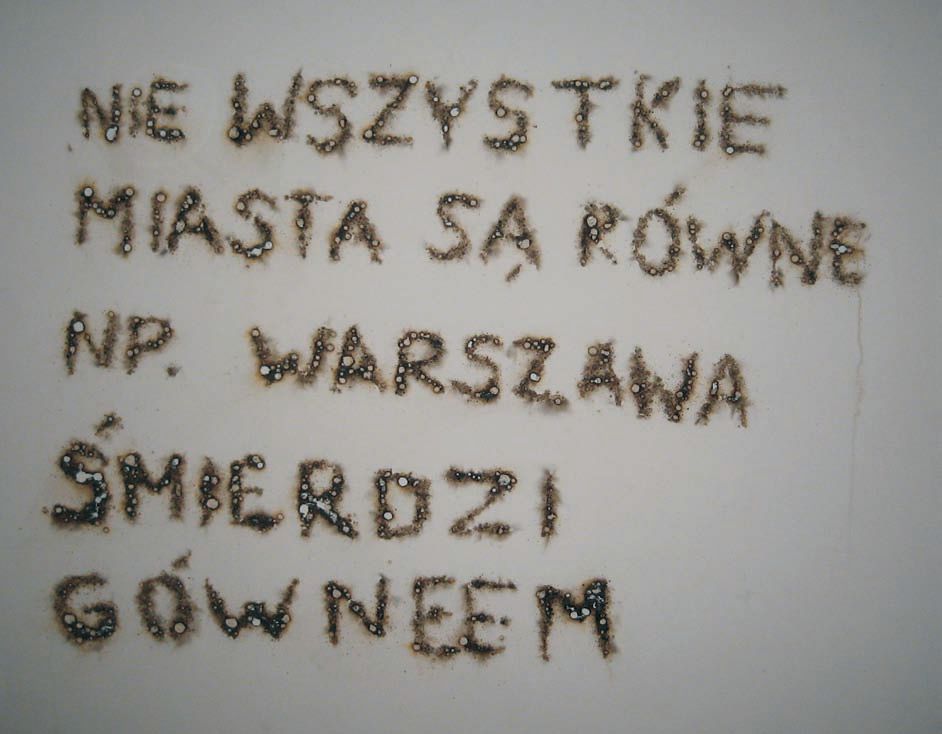 NIE WSZYSTKIE
MIASTA SĄ RÓWNE
NP. WARSZAWA
ŚMIERDZI
GÓWNEEM